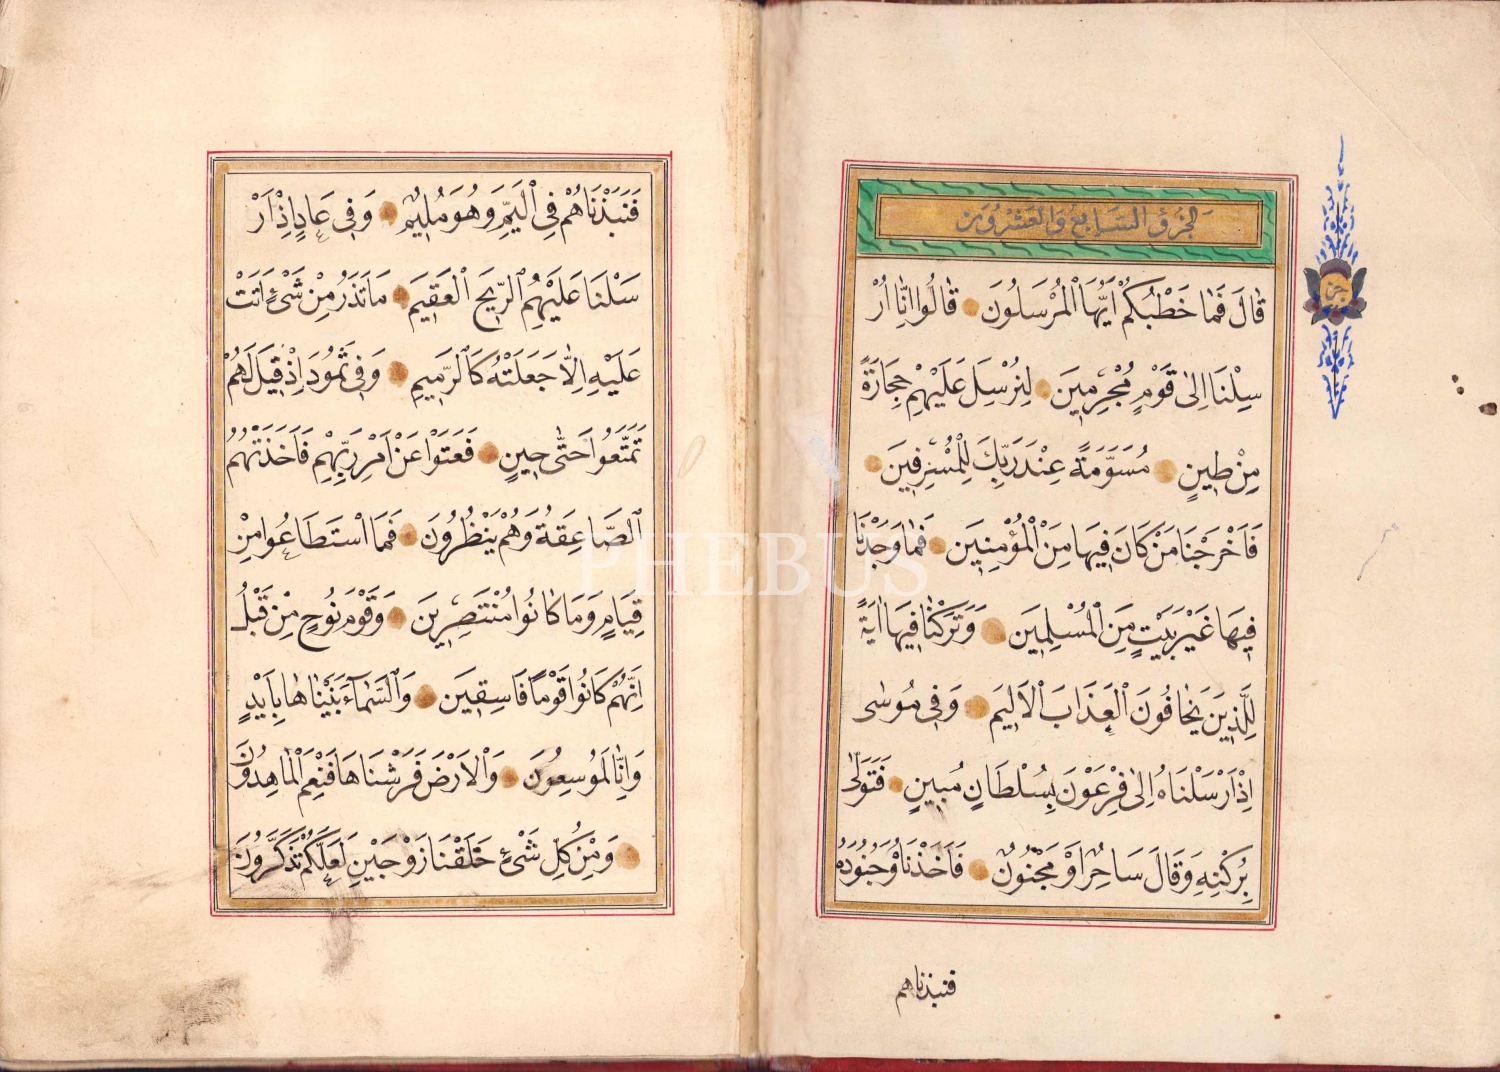 الجزؤ السابع والعشرون
جز
قَالَ فَمَا خَطْبُكُمْ اَيُّهَا الْمُرْسَلُونَ قَالُوا اِنَّا اُرْ
سِلْنَا اِلٰى قَوْمٍ مُجْرِمِينَ لِنُرْسِلَ عَلَيْهِمْ حِجَارَةً
مِنْ طِينٍ مُسَوَّمَةً عِنْدَ رَبِّكَ لِلْمُسْرِفِينَ
فَاَخْرَجْنَا مَنْ كَانَ فِيهَا مِنَ الْمُؤْمِنِينَ فَمَا وَجَدْنَا
فِيهَا غَيْرَ بَيْتٍ مِنَ الْمُسْلِمِينَ وَتَرَكْنَا فِيهَا اٰيَةً
لِلَّذِينَ يَخَافُونَ الْعَذَابَ الْاَلِيمَ وَفِى مُوسٰى
اِذْ اَرْسَلْنَاهُ اِلٰى فِرْعَوْنَ بِسُلْطَانٍ مُبِينٍ فَتَوَلّٰى
بِرُكْنِهِ وَقَالَ سَاحِرٌ اَوْ مَجْنُونٌ فَاَخَذْنَاهُ وَجُنُودَهُ
فنبذناهم
فَنَبَذْنَاهُمْ فِى الْيَمِّ وَهُوَ مُلِيمٌ وَفِى عَادٍ اِذْ اَرْ
سَلْنَا عَلَيْهِمُ الرِّيحَ الْعَقِيمَ مَا تَذَرُ مِنْ شَىْءٍ اَتَتْ
عَلَيْهِ اِلَّا جَعَلَتْهُ كَالرَّمِيمِ وَفِى ثَمُودَ اِذْ قِيلَ لَهُمْ
تَمَتَّعُوا حَتّٰى حِينٍ فَعَتَوْا عَنْ اَمْرِ رَبِّهِمْ فَاَخَذَتْهُمُ
الصَّاعِقَةُ وَهُمْ يَنْظُرُونَ فَمَا اسْتَطَاعُوا مِنْ
قِيَامٍ وَمَا كَانُوا مُنْتَصِرِينَ وَقَوْمَ نُوحٍ مِنْ قَبْلُ
اِنَّهُمْ كَانُوا قَوْمًا فَاسِقِينَ وَالسَّمَاءَ بَنَيْنَاهَا بِاَيْدٍ
وَاِنَّا لَمُوسِعُونَ وَالْاَرْضَ فَرَشْنَاهَا فَنِعْمَ الْمَاهِدُونَ
وَمِنْ كُلِّ شَىْءٍ خَلَقْنَا زَوْجَيْنِ لَعَلَّكُمْ تَذَكَّرُونَ
PHEBUS